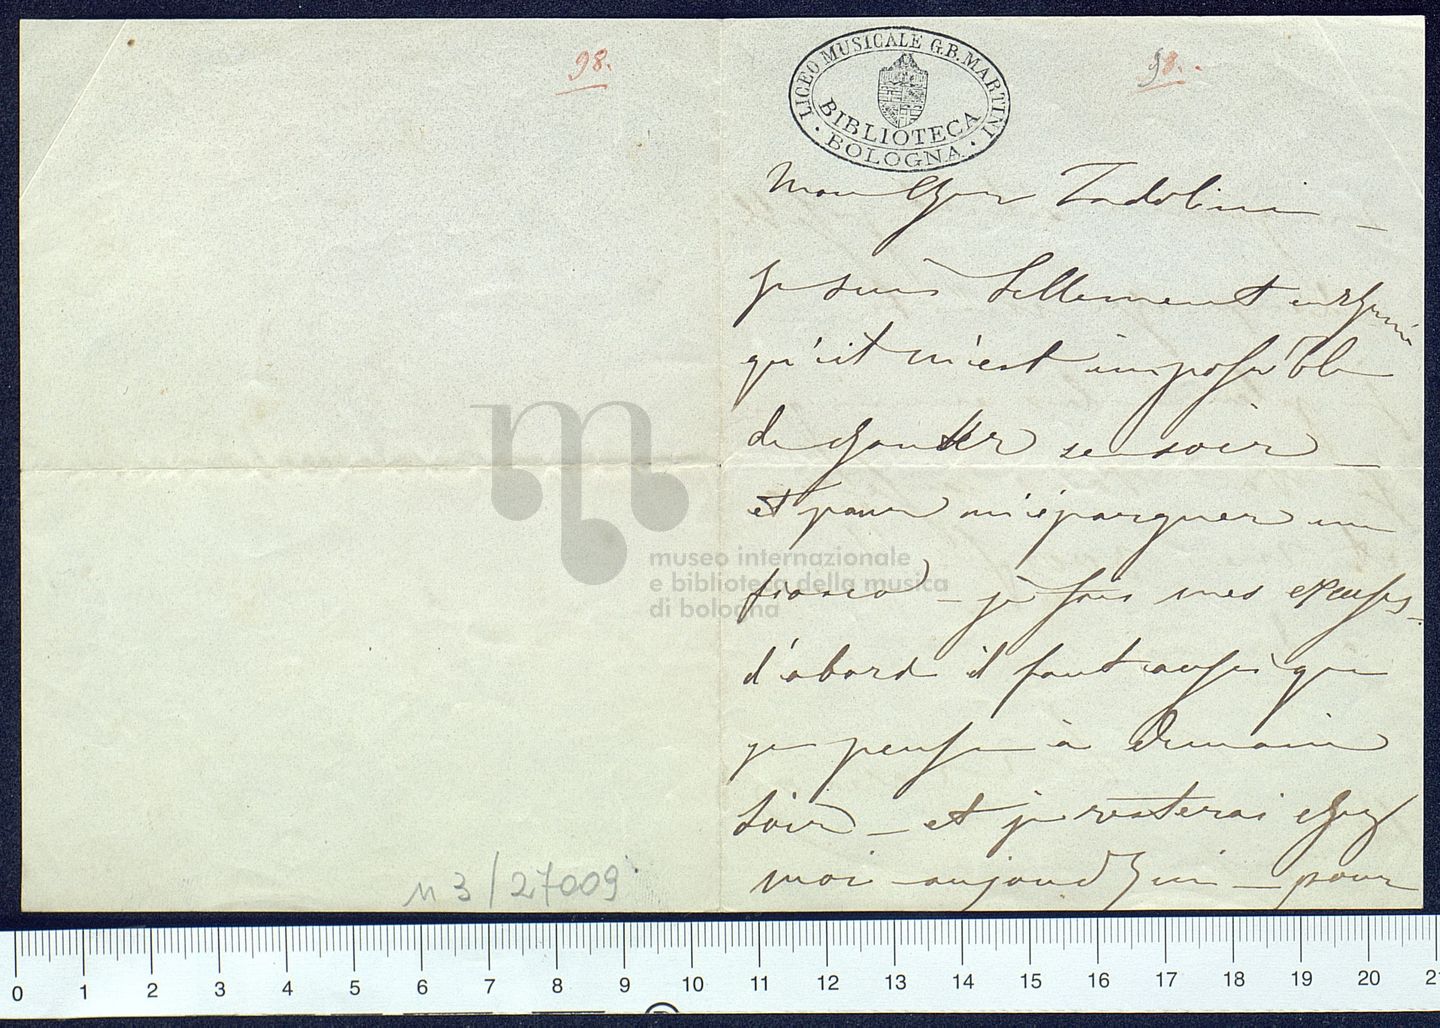 98.
n 3/27009
LICEO MUSICALE G.B. MARTINI
BIBLIOTECA
BOLOGNA
98.
Mon Cher Zadolini
je suis tellement enrhumé
qu'il m'est impossible
de chanter se soir
et pour m'épargner un
fiasco – je fais mes excuses
d'abord il faut aussi que
je pense à demain
soir – et je resterai chez
moi aujourd'hui – pour
museo internazionale
e biblioteca della musica
di bologna
0 1 2 3 4 5 6 7 8 9 10 11 12 13 14 15 16 17 18 19 20